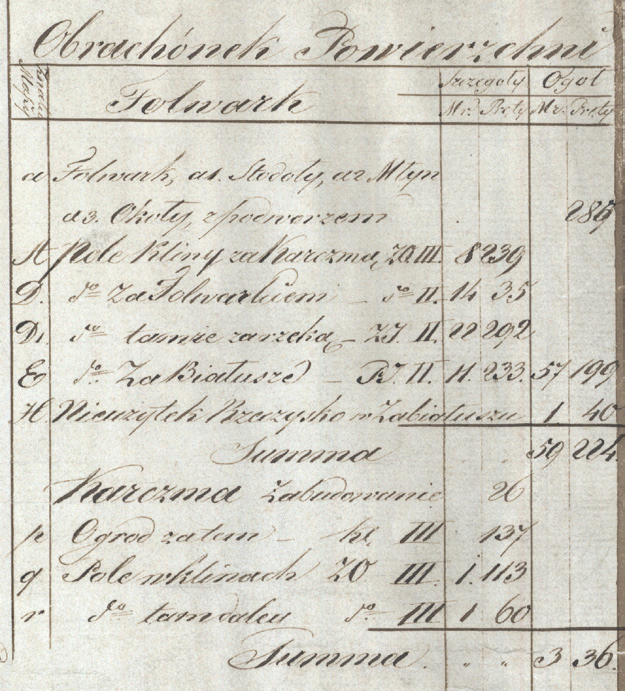 Obrachónek Powierzchni
Znaki Mappy Folwark Szczegoły Ogoł
Mr. Pręty Mr. Pręty
a Folwark, a1. Stodoły, a2 Młyn
a3. Okoły, z podworzem 285
A Pole Kliny za Karczmą, ZO. III. 8 239
D. do Za Folwarkiem - do II. 14 35
D1. do tamże za rzeką - ZI II. 22 292
E do Za Białuszé - II. 11. 233. 57 199
H Nieużytek Brzezysko w Zabiałuszu 1. 40
Summa 59 224
Karczma Zabudowanie 26
p Ogrod za tem - III 137
q Pole w klinach ZO III. 1. 113
r do tam daley do III 1 60
Summa. " " 3 36.